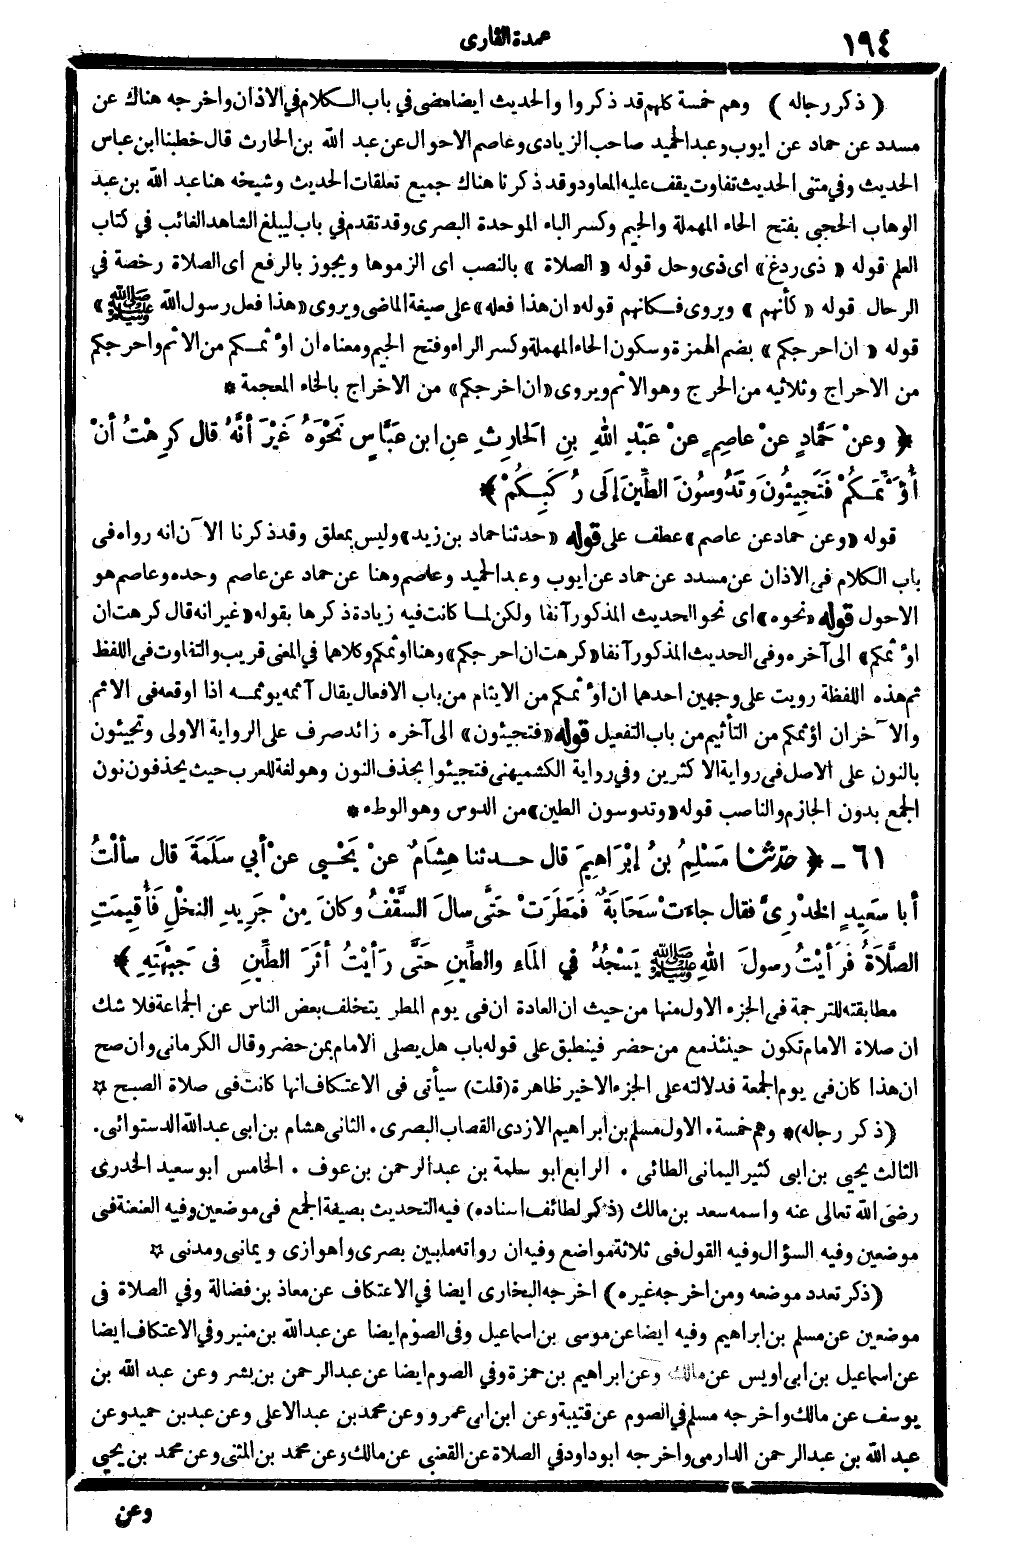 ١٩٤
عمدة القارى
( ذكر رجاله ) وهم خمسة كلهم قد ذكروا والحديث ايضا مضى في باب الكلام في الاذان واخرجه هناك عن
مسدد عن حماد عن ايوب وعبد الحميد صاحب الزيادى وعاصم الاحوال عن عبد الله بن الحارث قال خطبنا ابن عباس
الحديث وفي متنى الحديث تفاوت يقف عليه المعاود وقد ذكرنا هناك جميع تعلقات الحديث وشيخه هنا عبد الله بن عبد
الوهاب الحجبى بفتح الحاء المهملة والجيم وكسر الباء الموحدة البصرى وقد تقدم في باب ليبلغ الشاهد الغائب في كتاب
العلم قوله « ذى ردغ » اى ذى وحل قوله « الصلاة » بالنصب اى الزموها ويجوز بالرفع اى الصلاة رخصة في
الرحال قوله « كأنهم » ويروى فكانهم قوله « ان هذا فعله » على صيغة الماضى ويروى « هذا فعل رسول الله ﷺ »
قوله « ان احرجكم » بضم الهمزة وسكون الحاء المهملة وكسر الراء وفتح الجيم ومعناه ان اؤثمكم من الاثم واحرجكم
من الاحراج وثلاثيه من الحرج وهو الاثم ويروى « ان اخرجكم » من الاخراج بالخاء المعجمة *
﴿ وعنْ حَمَّادٍ عنْ عاصِمٍ عنْ عَبْدِ اللهِ بنِ الحَارِثِ عنِ ابن عَبَّاسٍ نَحْوَهُ غَيْرَ أنَّهُ قال كَرِهْتُ أنْ
أُؤَثِّمَكُمْ فَتَجِيئُونَ وتَدُوسُونَ الطِّينَ إلَى رُكَبِكُمْ ﴾
قوله « وعن حماد عن عاصم » عطف على قوله « حدثنا حماد بن زيد » وليس بمعلق وقد ذكرنا الآن انه رواه فى
باب الكلام فى الاذان عن مسدد عن حماد عن ايوب وعبد الحميد وعاصم وهنا عن حماد عن عاصم وحده وعاصم هو
الاحول قوله « نحوه » اى نحو الحديث المذكور آنفا ولكن لما كانت فيه زيادة ذكرها بقوله « غير انه قال كرهت ان
اؤثمكم » الى آخره وفى الحديث المذكور آنفا « كرهت ان احرجكم » وهنا اوثمكم وكلاهما في المعنى قريب والتفاوت فى اللفظ
ثم هذه اللفظة رويت على وجهين احدهما ان اوثمكم من الايثام من باب الافعال يقال آثمه يوثمه اذا اوقعه فى الاثم
والآخر ان اؤثمكم من التأثيم من باب التفعيل قوله « فتجيئون » الى آخره زائد صرف على الرواية الاولى وتجيئون
بالنون على الاصل فى رواية الاكثرين وفي رواية الكشميهنى فتجيئوا بحذف النون وهو لغة للعرب حيث يحذفون نون
الجمع بدون الجازم والناصب قوله « وتدوسون الطين » من الدوس وهو الوطء *
٦١ ـ ﴿ حدّثنا مُسْلِمُ بنُ إبْرَاهِيمَ قال حدثنا هِشَامٌ عنْ يَحْيى عنْ أبي سَلَمَةَ قال سألْتُ
أبا سَعِيدٍ الخدْرِىَّ فقال جاءتْ سَحَابَةٌ فَمَطَرَتْ حَتَّى سالَ السَّقْفُ وكانَ مِنْ جَرِيدِ النخْلِ فَأُقِيمَتِ
الصَّلاَةُ فَرَأيْتُ رسولَ اللهِ ﷺ يَسْجُدُ في المَاءِ والطِّينِ حتَّى رَأيْتُ أثَرَ الطِّينِ فى جَبْهَتِهِ ﴾
مطابقته للترجمة فى الجزء الاول منها من حيث ان العادة ان فى يوم المطر يتخلف بعض الناس عن الجماعة فلا شك
ان صلاة الامام تكون حينئذ مع من حضر فينطبق على قوله باب هل يصلى الامام بمن حضر وقال الكرمانى وان صح
ان هذا كان فى يوم الجمعة فدلالته على الجزء الاخير ظاهرة (قلت) سيأتى فى الاعتكاف انها كانت فى صلاة الصبح ☆
( ذكر رجاله )* وهم خمسة . الاول مسلم بن ابراهيم الازدى القصاب البصرى . الثانى هشام بن ابى عبد الله الدستوائى .
الثالث يحيى بن ابى كثير اليمانى الطائى . الرابع ابو سلمة بن عبد الرحمن بن عوف . الخامس ابو سعيد الخدرى
رضى الله تعالى عنه واسمه سعد بن مالك (ذكر لطائف اسناده) فيه التحديث بصيغة الجمع فى موضعين وفيه العنعنة فى
موضعين وفيه السؤال وفيه القول فى ثلاثة مواضع وفيه ان رواته ما بين بصرى واهوازى و يمانى ومدنى ☆
( ذكر تعدد موضعه ومن اخرجه غيره ) اخرجه البخارى ايضا في الاعتكاف عن معاذ بن فضالة وفي الصلاة فى
موضعين عن مسلم بن ابراهيم وفيه ايضا عن موسى بن اسماعيل وفى الصوم ايضا عن عبد الله بن منير وفي الاعتكاف ايضا
عن اسماعيل بن ابى اويس عن مالك وعن ابراهيم بن حمزة وفي الصوم ايضا عن عبد الرحمن بن بشر وعن عبد الله بن
يوسف عن مالك واخرجه مسلم في الصوم عن قتيبة وعن ابن ابى عمرو وعن محمد بن عبد الاعلى وعن عبد بن حميد وعن
عبد الله بن عبد الرحمن الدارمى واخرجه ابو داود في الصلاة عن القعنبى عن مالك وعن محمد بن المثنى وعن محمد بن يحيى
وعن